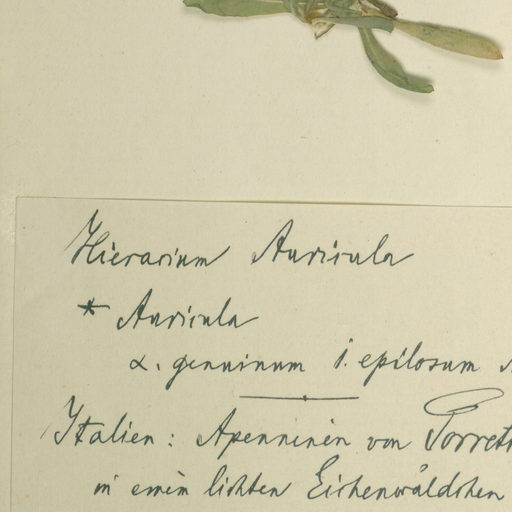 Hieracium Auricula
* Auricula
α. genuinum 1. epilosum
Italien: Apenninen von Porret
in einem lichten Eichenwäldchen